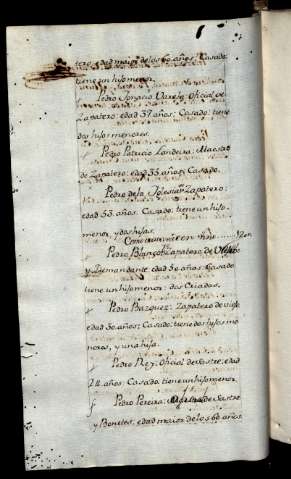 tero, edad maior de los 60 años, Casado:
tiene un hijo menor.
Pedro Ignacio Varela, Oficial de
Zapatero: edad 37 años; Casado: tiene
dos hijos menores.
Pedro Patricio Landeira: Maestro
de Zapatero: edad 35 años, Casado.
Pedro de la Iglesia: Zapatero:
edad 53 años. Casado: tiene un hijo
menor, y dos hijas.
Pedro Zapatero de
y edad 50 años. Casado
tiene un hijo menor: dos Criadas.
Pedro Bazquez: Zapatero de viejo
edad 50 años; Casado: tiene dos hijos me
nores, y una hija.
Pedro Rey: Oficial de Sastre: edad
28 años. Casado. tiene un hijo menor.
Pedro Pereira: de Sastre
y Bonetes: edad maior de los 60 años.